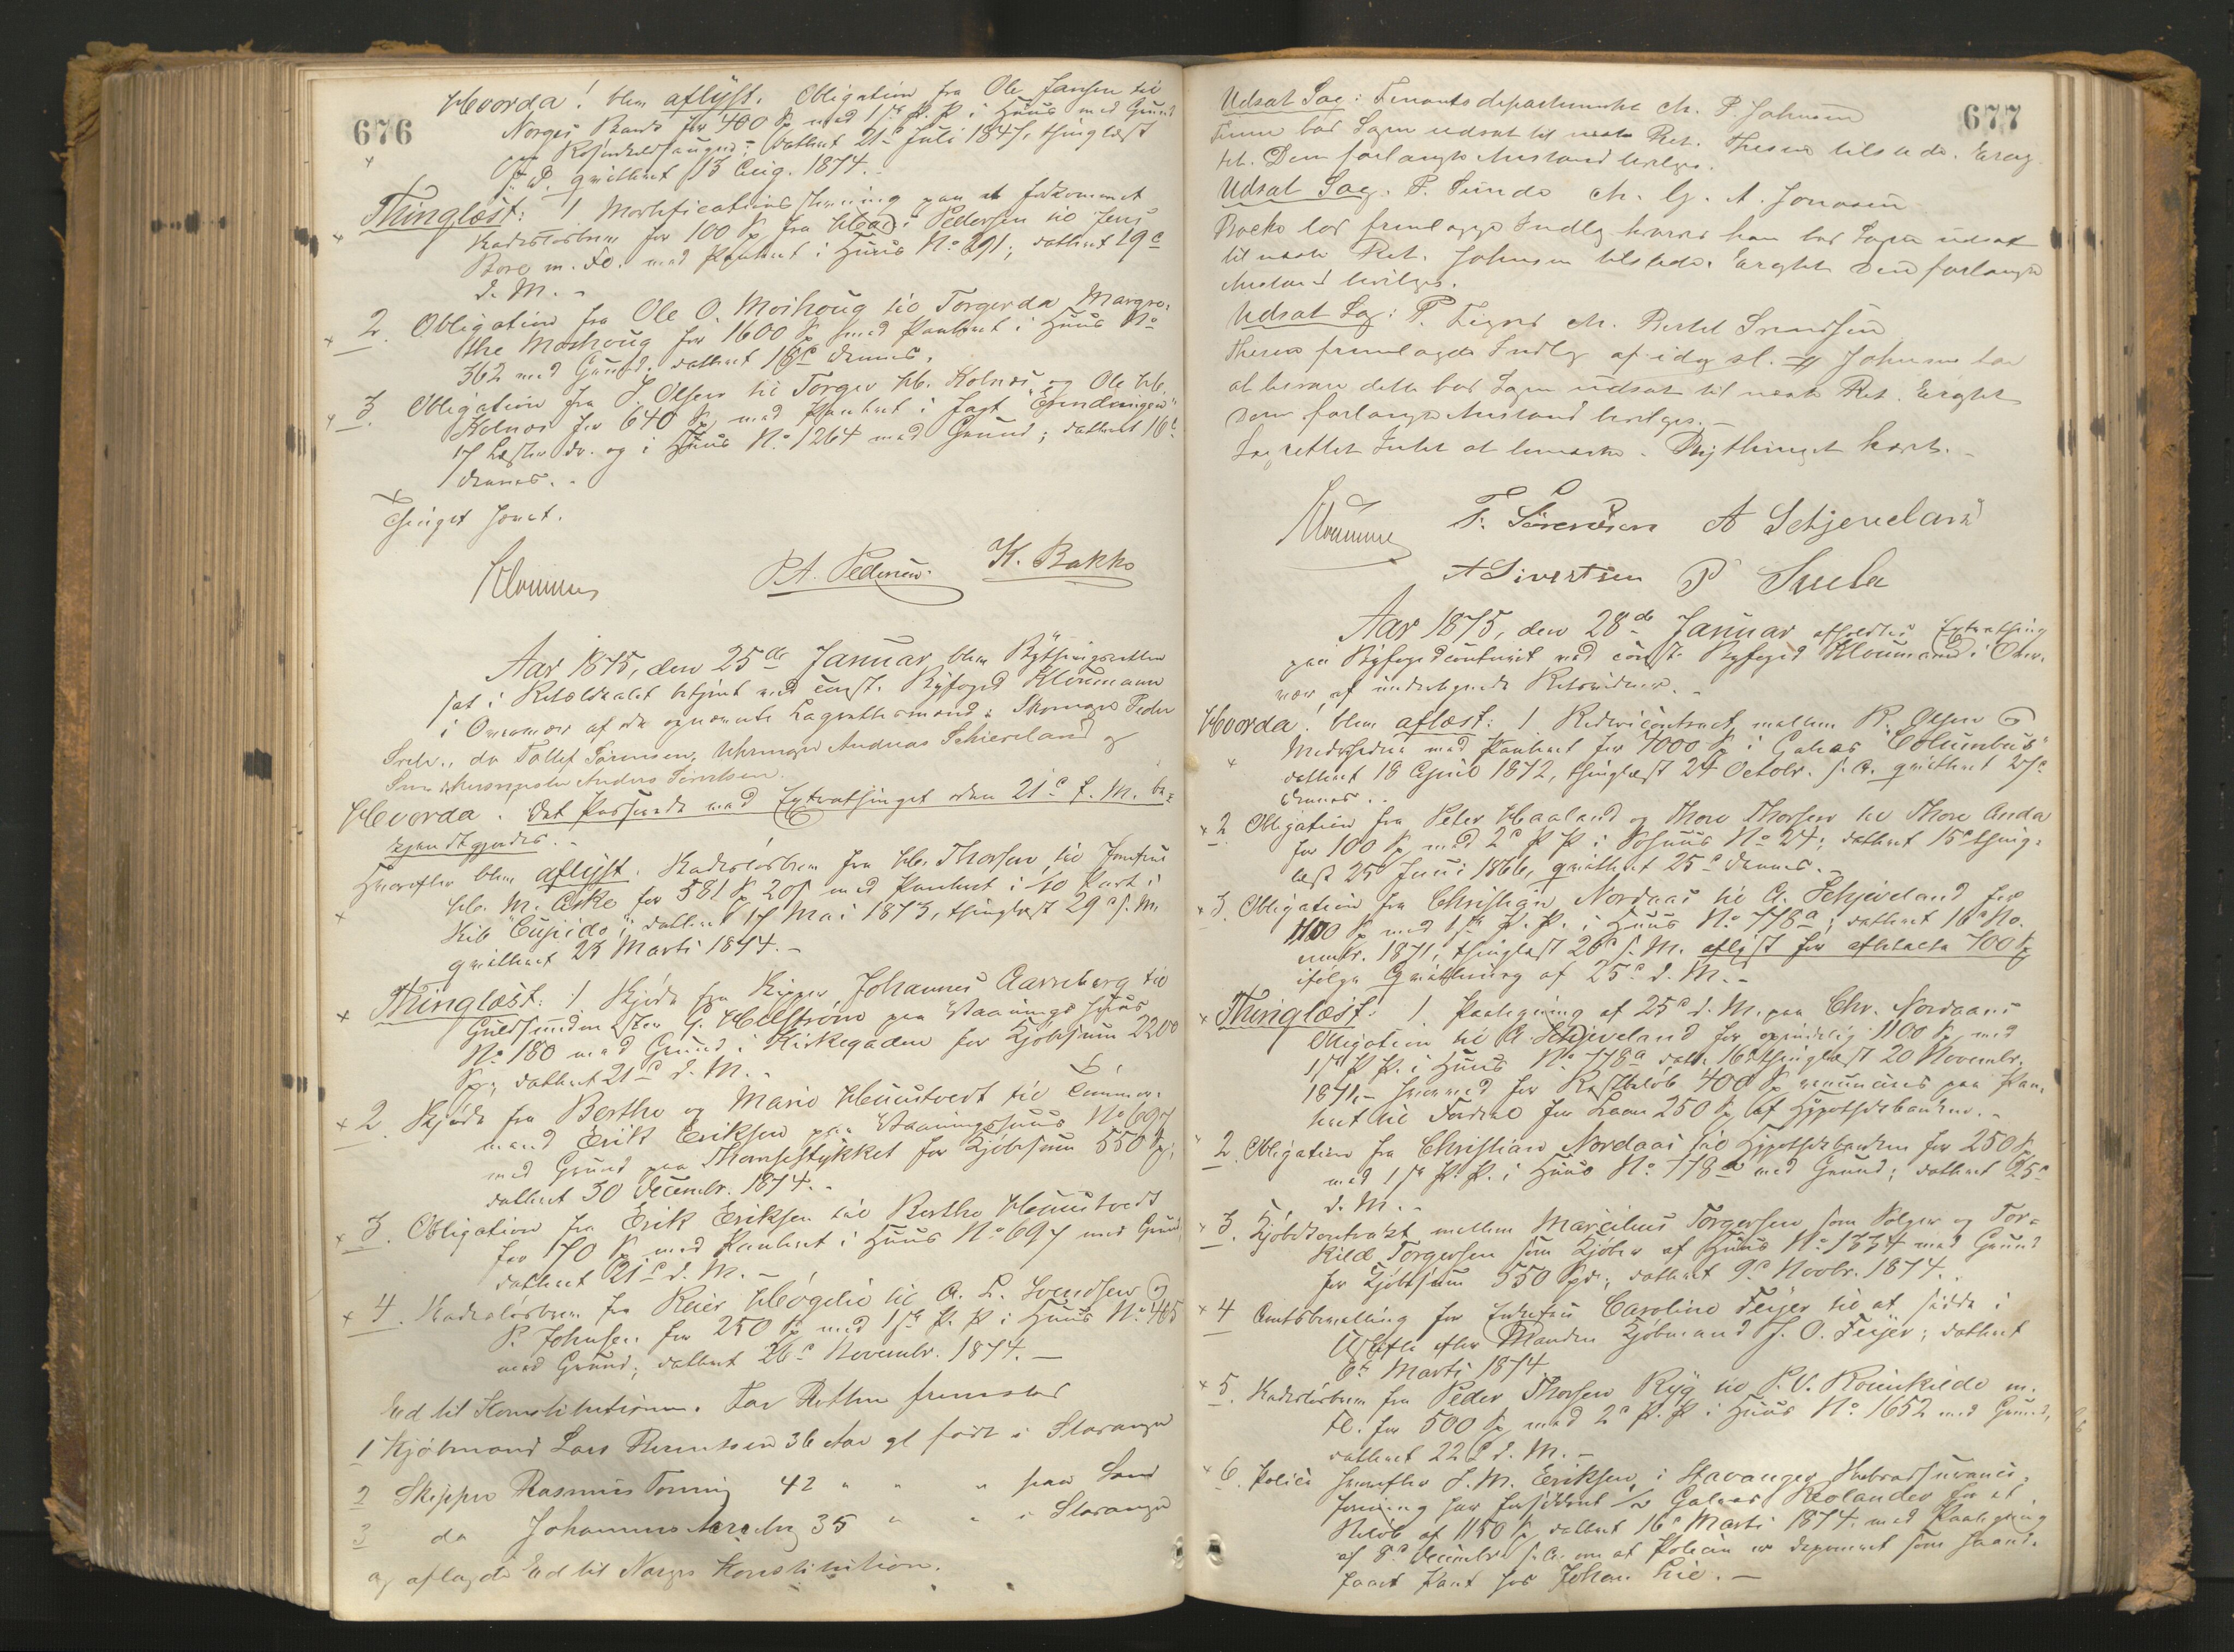 676
Hvorda! blev aflyst. Obligation fra Ole Jansen til
Norges Bank for 400 Sp med 1ste P. Pr i Huus med Grund
paa Rosenkildehaugen; dateret 21de Juli 1847, thinglæst
s. D. qvitteret 13 Aug. 1874.
Thinglæst: 1 Mortificationsstevning paa et forkommet
Kadeslösbrev for 100 Sp fra Pedersen til Jens
Bore m. Fl. med Panteret i Huus No 291; dateret 19de
d. M. -
2. Obligation fra Ole O. Moihoug til Torgerda Margre-
the Moihoug for 1600 Sp med Panteret i Huus No
362 med Grund. dateret 18de dennes.
3. Obligation fra J. Olsen til Torger Hb. Kolnes og Ole Hb.
Kolnes for 640 Sp med Panteret i Jagt "Erindringen"
17 Læster dr. og i Huus No 1264 med Grund; dateret 16de
dennes. -
Thinget hævet.
Kloumann P. A. Pedersen. K. Bakko
Aar 1875, den 25de Januar blev Bythingsretten
sat i Retslokalet betjent ved const. Byfoged Kloumann
i Overvær af de opnævnte Lagrettesmænd: Skomager Peder
Sæle, do Tollef Sörensen, Uhrmager Andreas Schieveland og
Anders Sivertsen.
Hvorda. Det Passerede ved Extrathinget den 21de d. M. be-
kjendtgjordes. -
Herefter blev aflyst. Kadeslösbrev fra Hb. Thorsen til Jomfru
Hb. M. Aske for 581 Sp 20 s med Panteret i 1/10 Part i
Skib "Cupido"; dateret 17 Mai 1873, thinglæst 29de s. M.
qvitteret 23 Marts 1874. -
Thinglæst: 1 Skjöde fra Skipper Johannes Aarreberg til
Guldsmeden Sten G. Hellström paa Vaaningshuus
No 180 med Grund i Kirkegaden for Kjöbesum 2200
Sp; dateret 21de d. M. -
2 Skjöde fra Berthe og Marie Heuustvedt til Tömmer-
mand Erik Eriksen paa Vaaningshuus No 697
med Grund paa Thomsestykket for Kjöbesum 550 Sp;
dateret 30 Decembr. 1874. -
3. Obligation fra Erik Eriksen til Berthe Heuustvedt
for 70 Sp med Panteret i Huus No 697 med Grund,
dateret 21de d. M. -
4. Kadeslösbrev fra Reier Høgelie til A. L. Svendsen og
P. Johnsen for 250 Sp med 1ste P. Pr i Huus No 465
med Grund; dateret 26de Novembr. 1874. -
Ed til Konstitutionen. For Retten fremstod
1 Kjöbmand Lars Berentsen 36 Aar gl födt i Stavanger
2 Skipper Rasmus Tonning 42 " " " paa Land
3 do Johannes Aareberg 35 " " i Stavanger
og aflagde Ed til Norges Konstitution.
677
Udsat Sag: Finantsdepartementet ctr. P. Johnsen
bad Sagen udsat til næste Ret. Thesen tilstede. Eragt-
tet. Den forlangte Anstand bevilges.
Udsat Sag. P. Sunde ctr. G. A. Jonassen
Bocke lod fremlægge Indlæg hvorved han bad Sagen udsat
til næste Ret. Johnsen tilstede. Eragtet Den forlangte
Anstand bevilges.
Udsat Sag: P. ctr. Bertel Svendsen
Thesen fremlagde Indlæg af idag sl. # Johnsen lod
at besvare dette bad Sagen udsat til næste Ret. Eragtet
Den forlangte Anstand bevilges. -
Lagrettet Intet at bemærke. Bythinget hævet. -
Kloumann T. Sörensen A Schjeveland
A Sivertsen P Sæla
Aar 1875, den 28de Januar afholdtes Extrathing
paa Byfogedcontoiret ved const. Byfoged Kloumann i Over-
vær af undertegnede Retsvidner. -
Hvorda! blev aflæst: 1. Redericontract mellem R. Olsen og
Medrhedere med Panteret for 4000 Sp i Galeas "Columbus"
dateret 18 April 1872, thinglæst 24 Octobr. s. A. qvitteret 27de
dennes. -
2 Obligation fra Peter Haaland og Thore Thorsen til Thore Anda
for 100 Sp med 2de P. Pr i Söhuus No 24; dateret 15de thing-
læst 25 Juni 1866, qvitteret 25de dennes. -
3. Obligation fra Christian Nordaas til A. Schjeveland for
1100 Sp med 1ste P. Pr. i Huus No 778a; dateret 16de No-
vembr. 1871, thinglæst 20de s. M. aflyst for afbetalte 700 Sp
ifölge Qvittering af 25de d. M. -
Thinglæst: 1. Paategning af 25de d. M. paa Chr. Nordaas's
Obligation til A. Schjeveland for oprindelig 1100 Sp med
1ste P. Pr. i Huus No 778a dateret 16de thinglæst 20 Novembr.
1871, - hvorved for Restbelöb 400 Sp renunceres paa Pan-
teret til Fordeel for Laan 250 Sp af Hypothekbanken. -
2. Obligation fra Christian Nordaas til Hypothekbanken for 250 Sp
med 1ste P. Pr. i Huus No 778a med Grund; dateret 25de
d. M. -
3. Kjöbekontrakt mellem Marcelius Torgersen som Sælger og Tor-
kild Torgersen som Kjöber af Huus No 1334 med Grund
for Kjöbesum 550 Spd.; dateret 9de Novbr. 1874. -
4 Amtsbevilling for Enkefru Caroline Feijer til at sidde i
Uskifte efter Manden Kjöbmand J. O. Feijer; dateret
6te Marts 1874
5. Kadeslösbrev fra Peder Thorsen Ryg til P. V. Rosenkilde m.
Fl. for 500 Sp med 2de P. Pr i Huus No 1652 med Grund,
dateret 22de d. M. -
6. Police hvorefter J. M. Eriksen i Stavanger
forening har forsikkret Galeas Reolander for et
Belöb af 1150 Sp dateret 16de Marts 1874. med Paategning
af 8de Decembr s. A. om at Policen er deponeret som haand-
faaet Pant hos Johan Lie. -